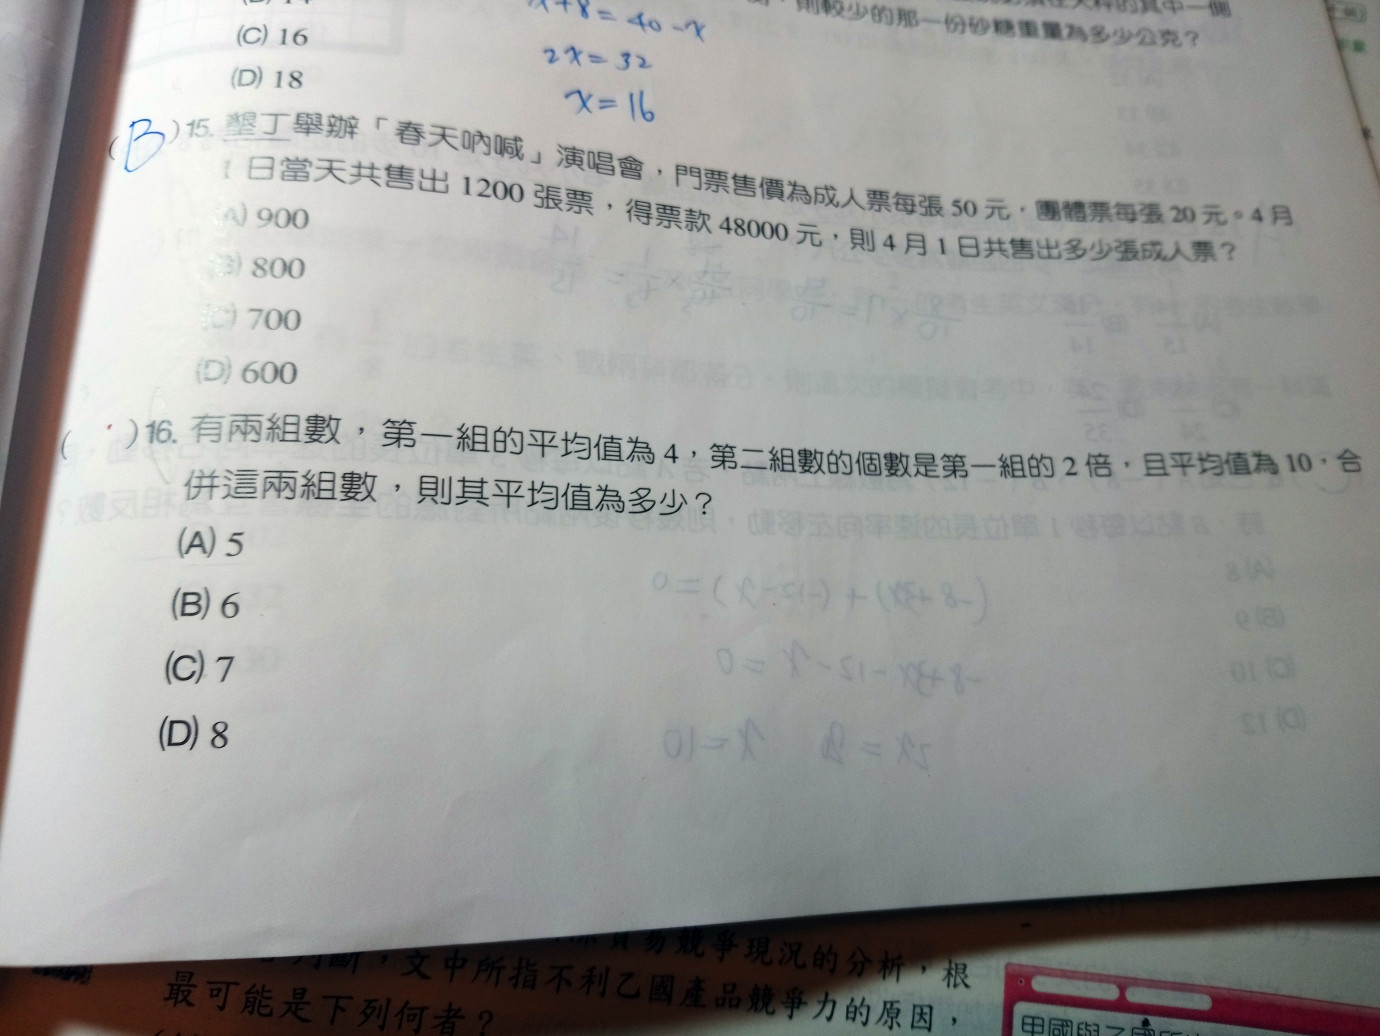 (C) 16
(D) 18
x+8=40-x
2x=32
x=16
則較少的那一份砂糖重量為多少公克？
(B)15. 墾丁舉辦「春天吶喊」演唱會，門票售價為成人票每張50元，團體票每張20元。4月
1日當天共售出1200張票，得票款48000元，則4月1日共售出多少張成人票？
(A) 900
(B) 800
(C) 700
(D) 600
( )16. 有兩組數，第一組的平均值為4，第二組數的個數是第一組的2倍，且平均值為10，合
併這兩組數，則其平均值為多少？
(A) 5
(B) 6
(C) 7
(D) 8
貿易競爭現況的分析，根
判斷，文中所指不利乙國產品競爭力的原因，
最可能是下列何者？
甲國與乙國